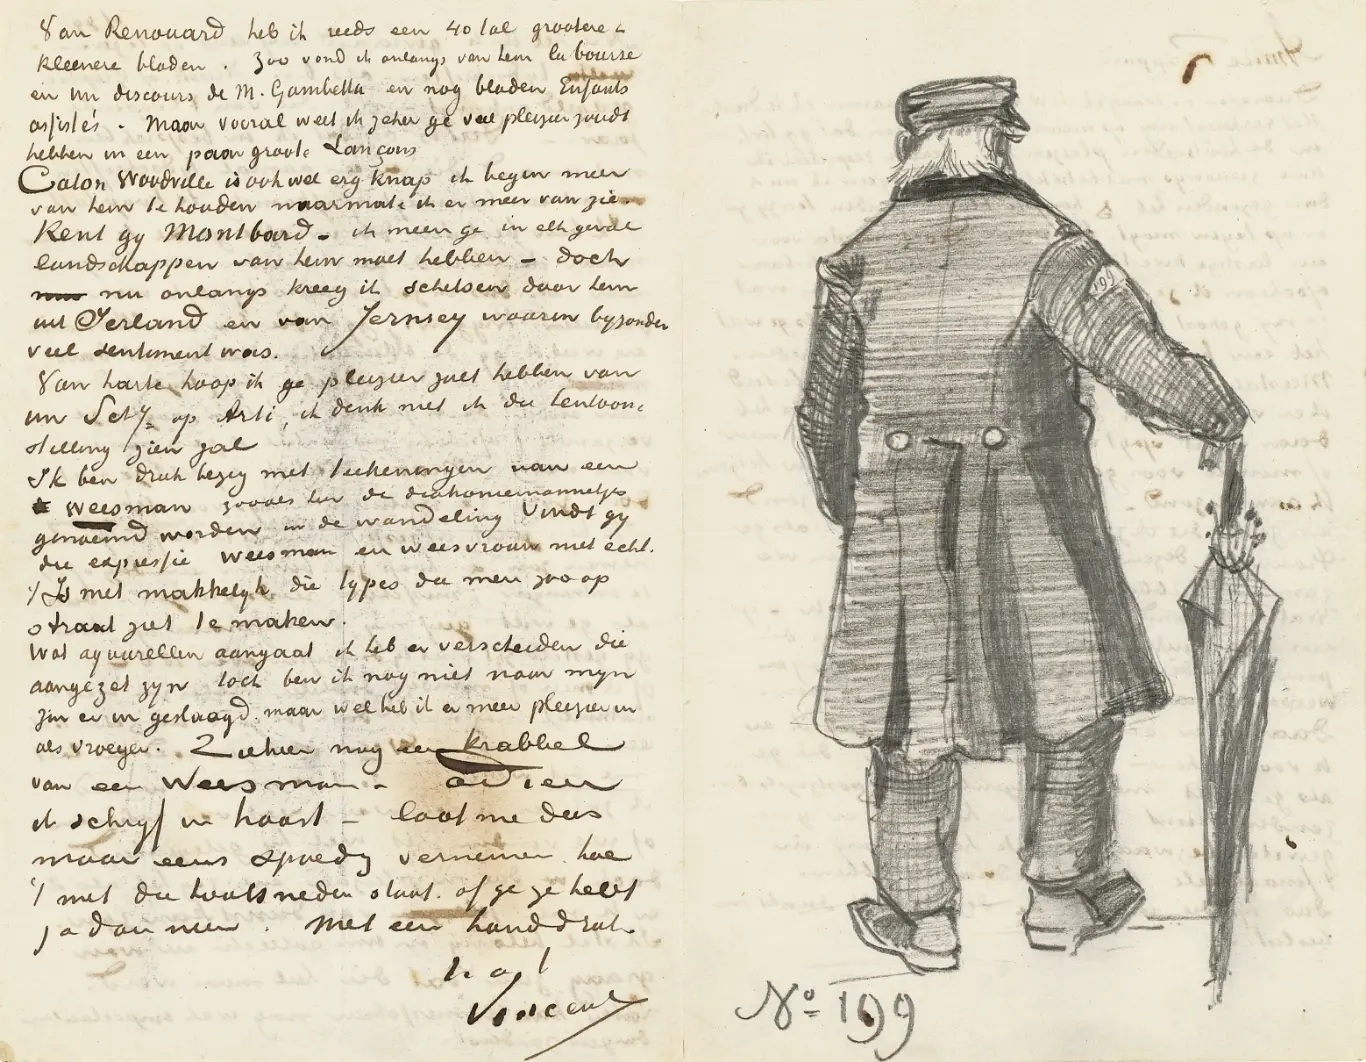 Van Renouard heb ik reeds een 40 tal grootere &
kleenere bladen. Zoo vond ik onlangs van hem la bourse
en un discours de M. Gambetta en nog bladen Enfants
assistés. Maar vooral weet ik zeker ge veel pleizier zoudt
hebben in een paar groote Lançons
Caton Woodville is ook wel erg knap ik begin meer
van hem te houden naarmate ik er meer van zie.
Kent gy Montbard – ik meen ge in elk geval
landschappen van hem moet hebben – doch
nu onlangs kreeg ik schetsen door hem
uit Ierland en van Jernsey waarin byzonder
veel sentiment was.
Van harte hoop ik ge pleizier zult hebben van
uw op Arti, ik denk niet ik die tentoon=
stelling zien zal
Ik ben druk bezig met teekeningen van een
weesman zooals hier de diakoniemannetjes
genoemd worden in de wandeling Vindt gy
die expressie weesman en weesvrouw niet echt.
't Is niet makkelyk die types die men zoo op
straat ziet te maken.
Wat aquarellen aangaat ik heb er verscheiden die
aangezet zyn toch ben ik nog niet naar myn
zin er in geslaagd. maar wel heb ik er meer pleizier in
als vroeger. Ziehier nog een krabbel
van een Weesman – adieu
ik schryf in haast – laat me dus
maar eens spoedig vernemen hoe
't met die houtsneden staat. of ge ze hebt
ja dan neen. Met een handdruk.
t. à t.
Vincent
199
No 199